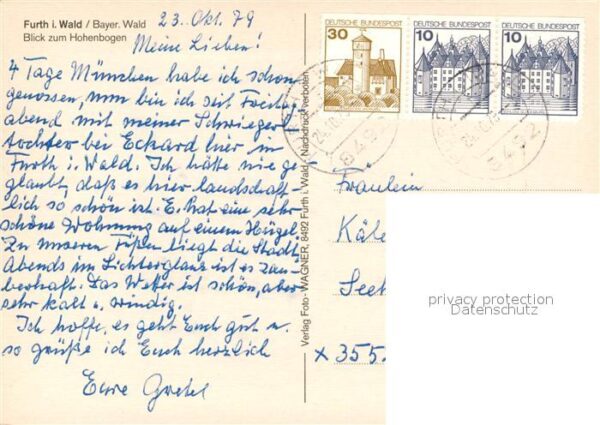 Furth i. Wald / Bayer. Wald
Blick zum Hohenbogen
23. Okt. 79
Meine Lieben!
4 Tage München habe ich schon
genossen, nun bin ich seit Freitag
abend mit meiner Schwieger-
tochter bei Eckard hier in
Furth i. Wald. Ich hätte nie ge-
glaubt, daß es hier landschaft-
lich so schön ist. E. hat eine sehr
schöne Wohnung auf einem Hügel.
Zu unseren Füßen liegt die Stadt.
Abends im Lichterglanz ist es zau-
berhaft. Das Wetter ist schön, aber
sehr kalt u. windig.
Ich hoffe, es geht Euch gut u.
so grüße ich Euch herzlich
Eure Gretel
Verlag Foto-WAGNER, 8492 Furth i. Wald - Nachdruck verboten
DEUTSCHE BUNDESPOST
30
DEUTSCHE BUNDESPOST
10
DEUTSCHE BUNDESPOST
10
8492
8492
Fräulein
Käte
Seet
x 355
privacy protection
Datenschutz